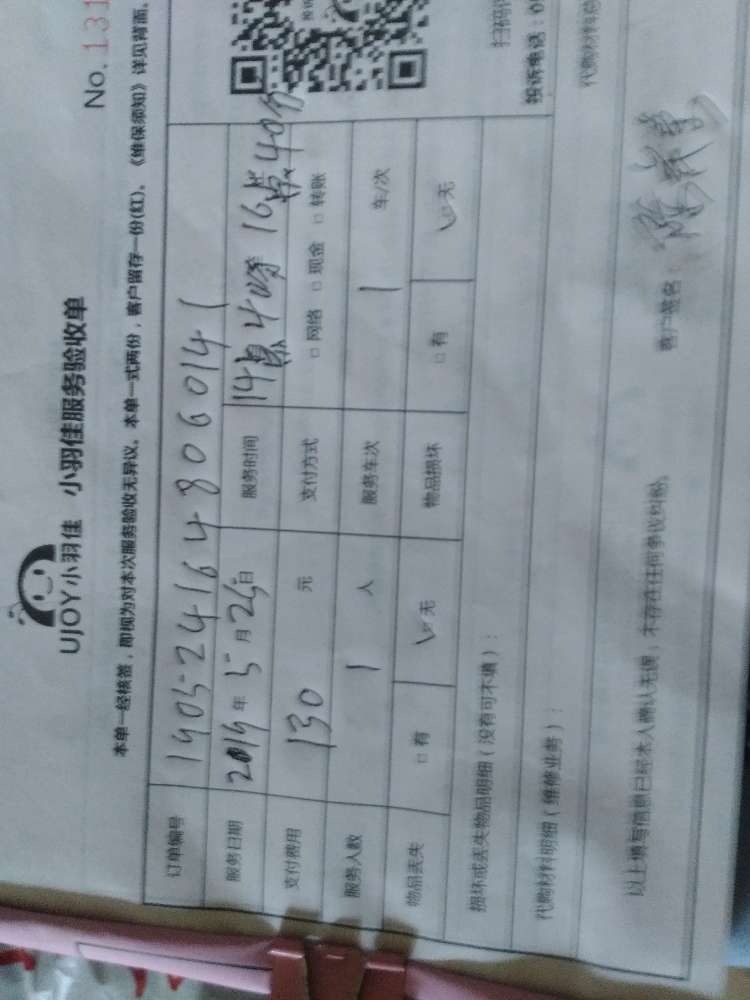 No.131
UJOY小羽佳 小羽佳服务验收单
本单一经核签，即视为对本次服务验收无异议。本单一式两份，客户留存一份(红)。《维保须知》详见背面。
订单编号 1905241648060141
服务日期 2019年5月25日 服务时间 14点40分 16点40分
支付费用 130 元 支付方式 □ 网络 □ 现金 □ 转账
服务人数 1 人 服务车次 1 车/次
物品丢失 □ 有 ☑ 无 物品损坏 □ 有 ☑ 无
损坏或丢失物品明细（没有可不填）：
扫码
投诉电话：0
代购材料明细（维修业务）：
代购材料总
以上填写信息已经本人确认无误，不存在任何争议纠纷。
客户签名：